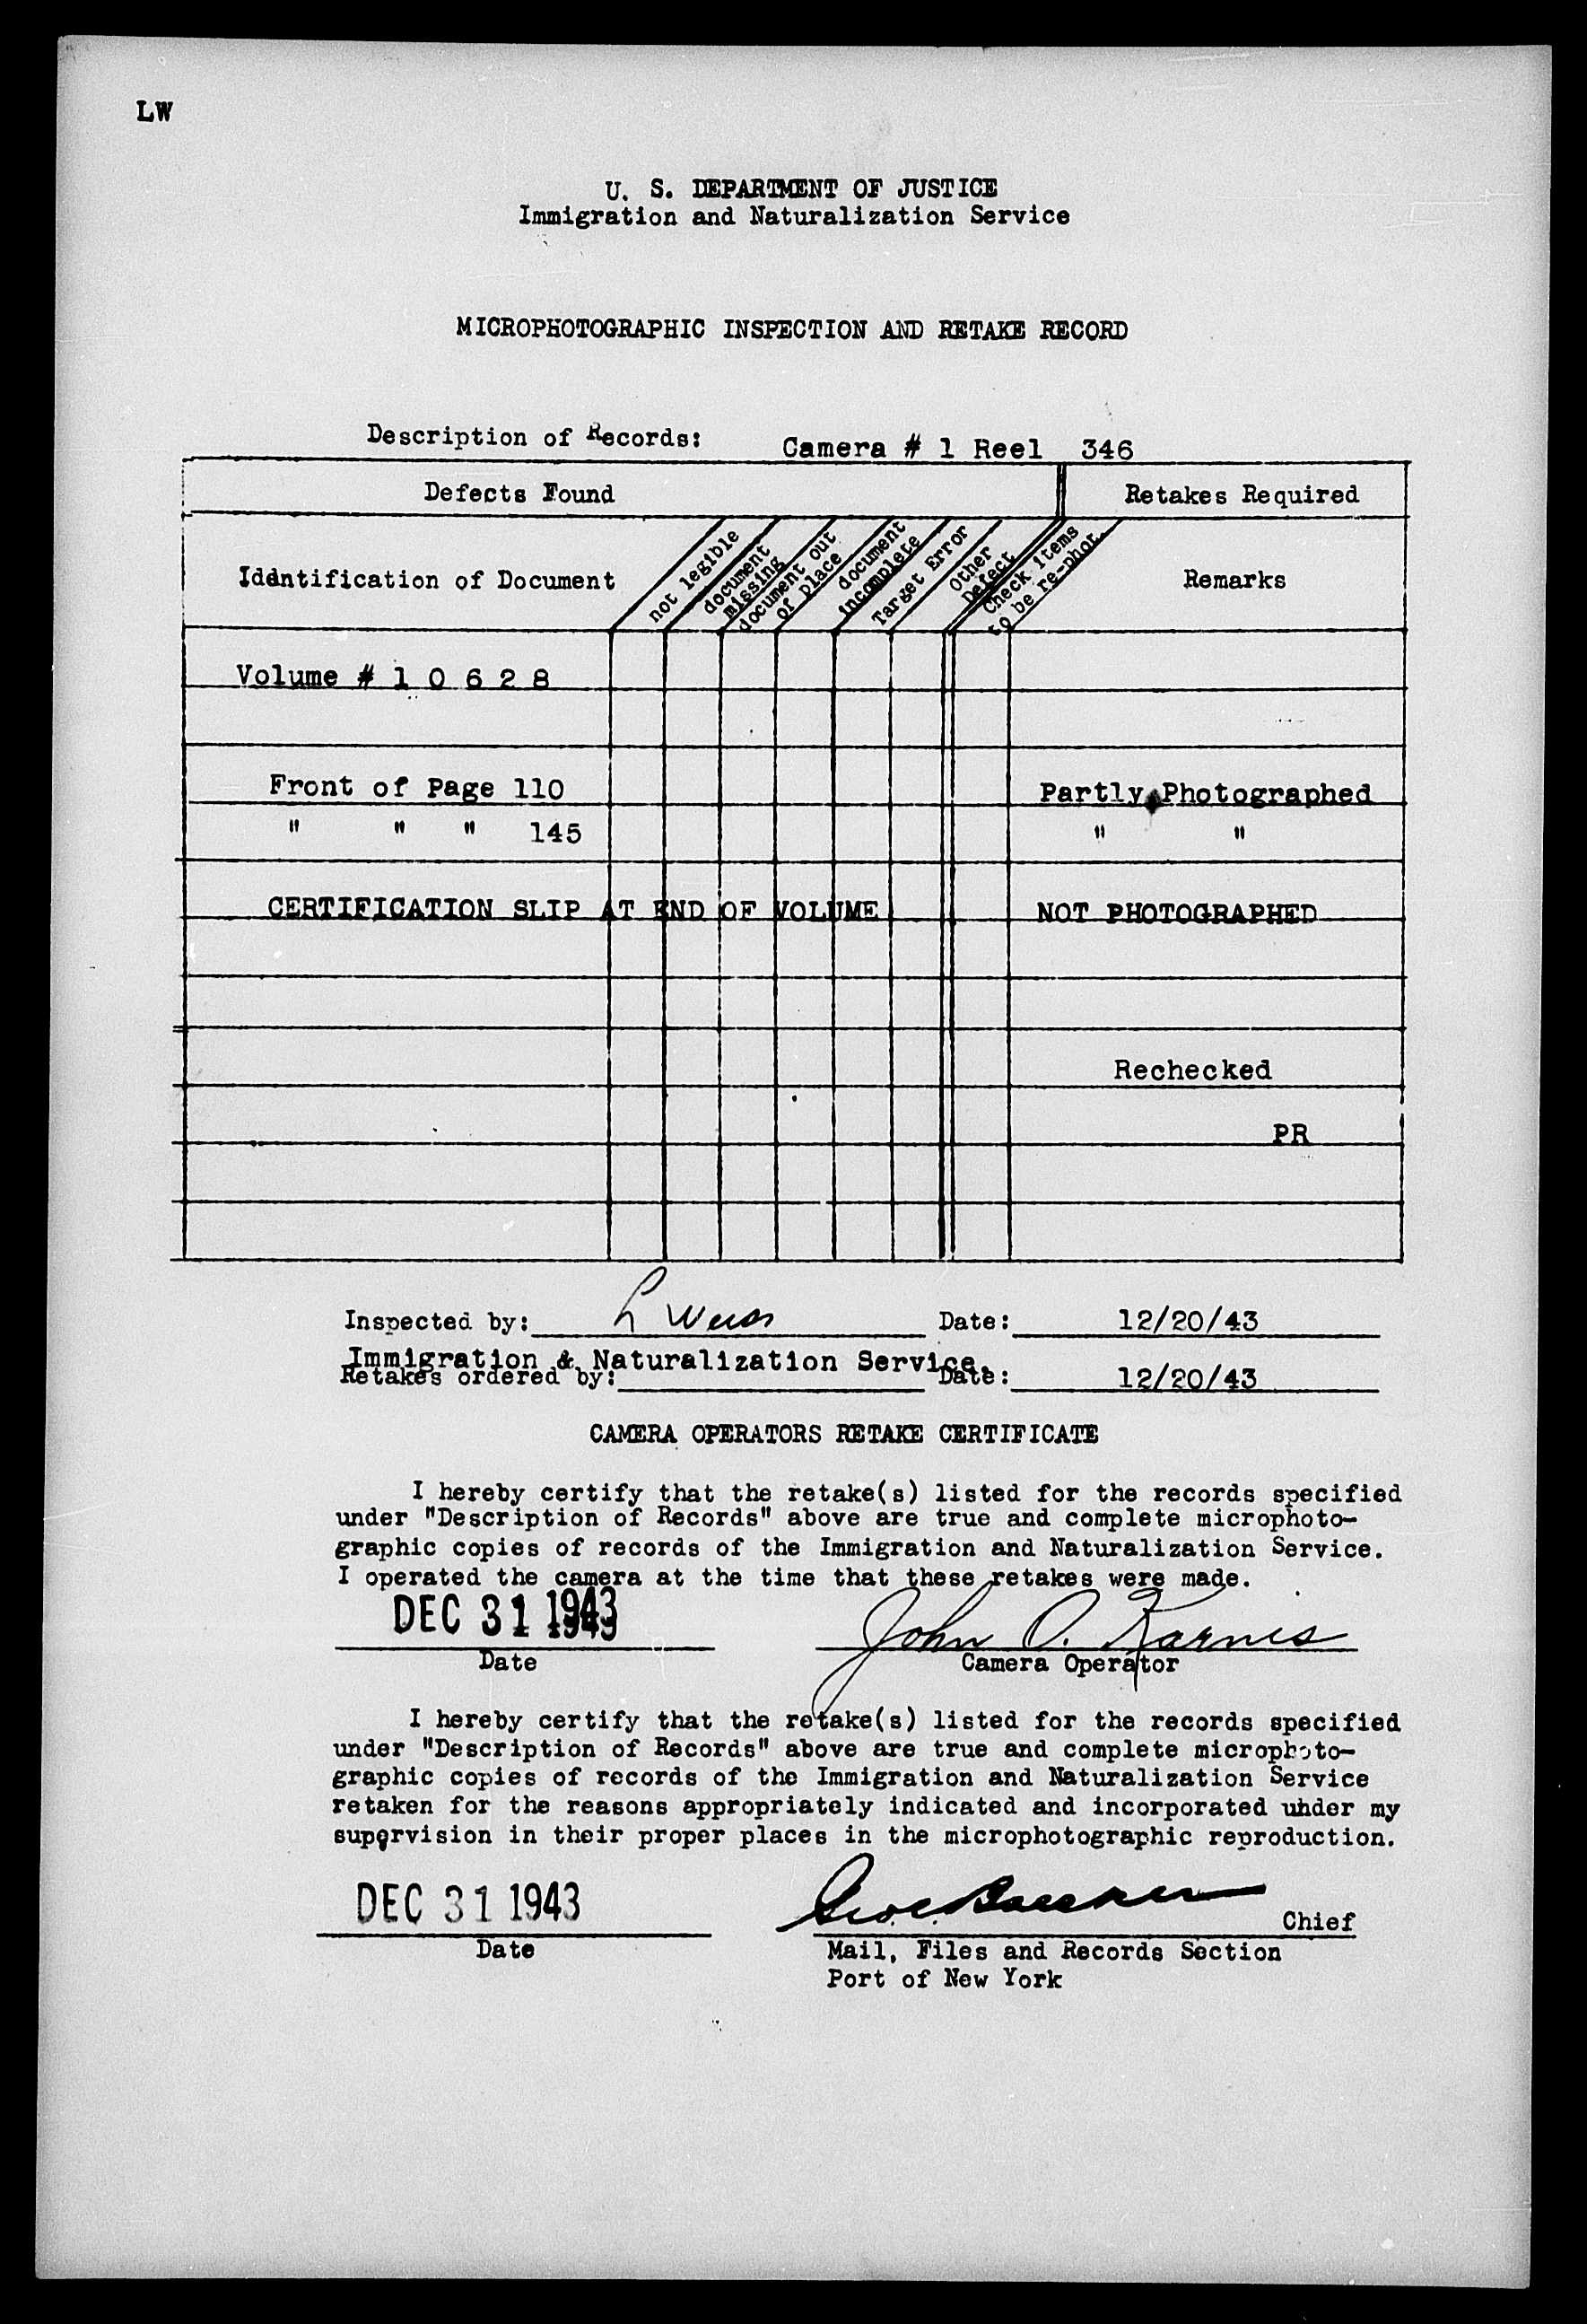 LW
U. S. DEPARTMENT OF JUSTICE
Immigration and Naturalization Service
MICROPHOTOGRAPHIC INSPECTION AND RETAKE RECORD
Description of Records: Camera # 1 Reel 346
Defects Found Retakes Required
Iddntification of Document not legible document missing document out of place document incomplete Target Error Other Defect Check items to be re-phot. Remarks
Volume # 1 0 6 2 8
Front of Page 110 Partly Photographed
" " " 145 " "
CERTIFICATION SLIP AT END OF VOLUME NOT PHOTOGRAPHED
Rechecked
PR
Inspected by: L Weiss Date: 12/20/43
Immigration & Naturalization Service.
Retakes ordered by: Date: 12/20/43
CAMERA OPERATORS RETAKE CERTIFICATE
I hereby certify that the retake(s) listed for the records specified
under "Description of Records" above are true and complete microphoto-
graphic copies of records of the Immigration and Naturalization Service.
I operated the camera at the time that these retakes were made.
DEC 31 1943 John O. Karnis
Date Camera Operator
I hereby certify that the retake(s) listed for the records specified
under "Description of Records" above are true and complete microphoto-
graphic copies of records of the Immigration and Naturalization Service
retaken for the reasons appropriately indicated and incorporated uhder my
supervision in their proper places in the microphotographic reproduction.
DEC 31 1943 Chief
Date Mail, Files and Records Section
Port of New York